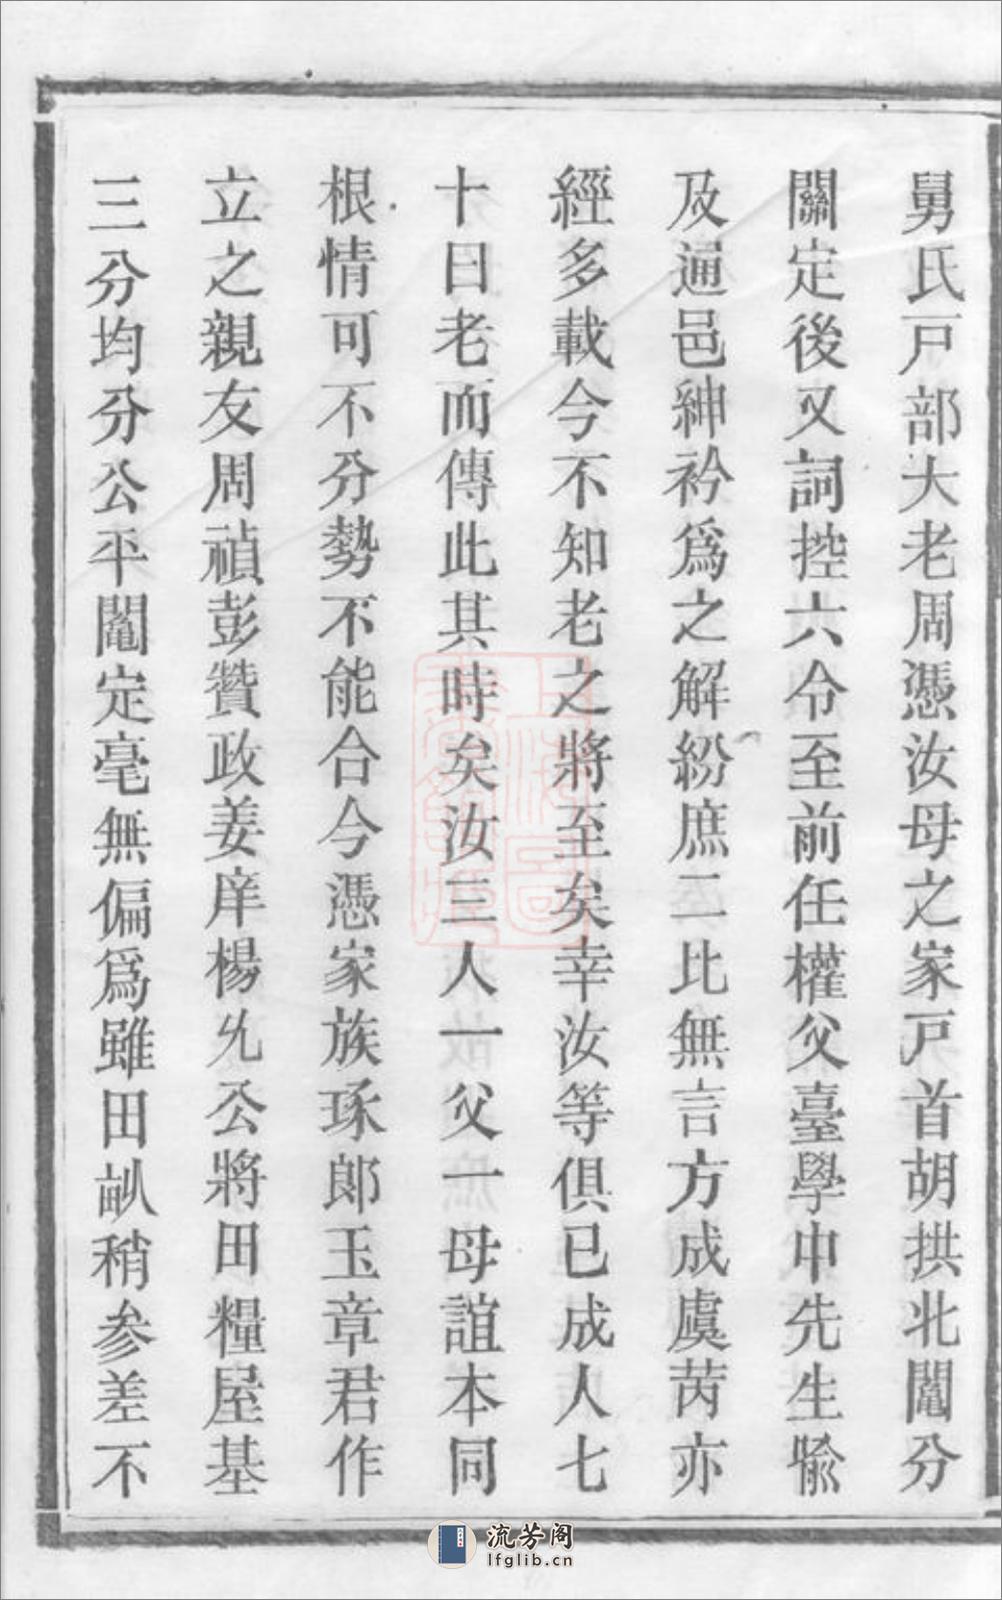 舅氏戸部大老周憑汝母之家戸首胡拱北鬮分
關定後又詞控六令至前任權父臺學中先生喻
及通邑紳衿爲之解紛庶二比無言方成虞芮亦
經多載今不知老之將至矣幸汝等俱已成人七
十曰老而傳此其時矣汝三人一父一母誼本同
根情可不分勢不能合今憑家族琢郎玉章君作
立之親友周禎彭贊政姜庠楊允公將田糧屋基
三分均分公平鬮定毫無偏爲雖田畝稍參差不
流芳阁
lfglib.cn